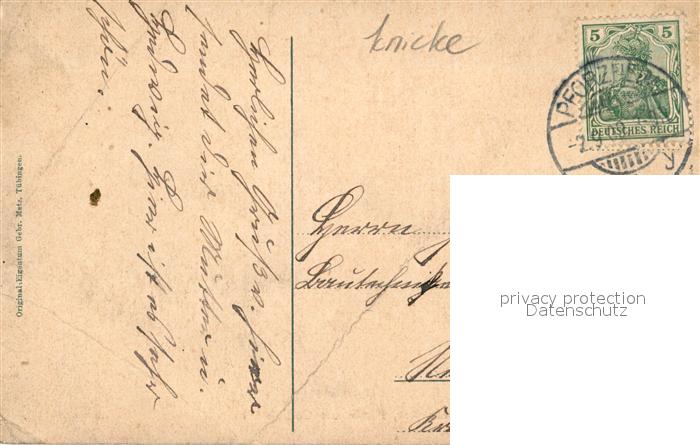 Herzlichen Gruß v. hier
sendet dir Mutter u.
Hedwig. Hier ist es sehr
schön.
knicke
5 5
DEUTSCHES REICH
PFORZHEIM
Herrn
Bautechniker
privacy protection
Datenschutz
Original-Eigentum Gebr. Metz, Tübingen.